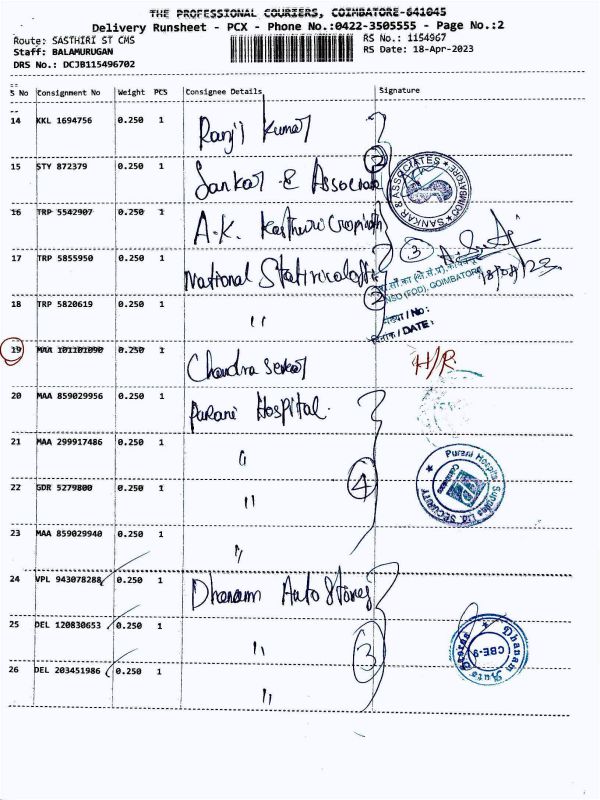 THE PROFESSIONAL COURIERS, COIMBATORE-641045
Delivery Runsheet - PCX - Phone No.:0422-3505555 - Page No.:2
Route: SASTHIRI ST CMS
RS No.: 1154967
Staff: BALAMURUGAN
RS Date: 18-Apr-2023
DRS No.: DCJB115496702
S No Consignment No Weight PCS Consignee Details Signature
14 KKL 1694756 0.250 1 Ranjit Kumar
15 STY 872379 0.250 1 Sankar & Associate
2
SANKAR & ASSOCIATES COIMBATORE
16 TRP 5542907 0.250 1 A.K.
3
17 TRP 5855950 0.250 1 National
NSO (FOD), COIMBATORE
18/04/23
2
18 TRP 5820619 0.250 1 "
संख्या / No :
दिनांक / DATE :
19 MAA 101101090 0.250 1 Chandra Sekar H/R.
20 MAA 859029956 0.250 1 Purani Hospital.
21 MAA 299917486 0.250 1 "
22 GDR 5279800 0.250 1 "
4
Purani Hospital Supplies Ltd. SECURITY
23 MAA 859029940 0.250 1 "
24 VPL 943078288 0.250 1 Dhanam Auto Stores
25 DEL 120830653 0.250 1 "
3
Dhanam Auto Stores CBE-9
26 DEL 203451986 0.250 1 "